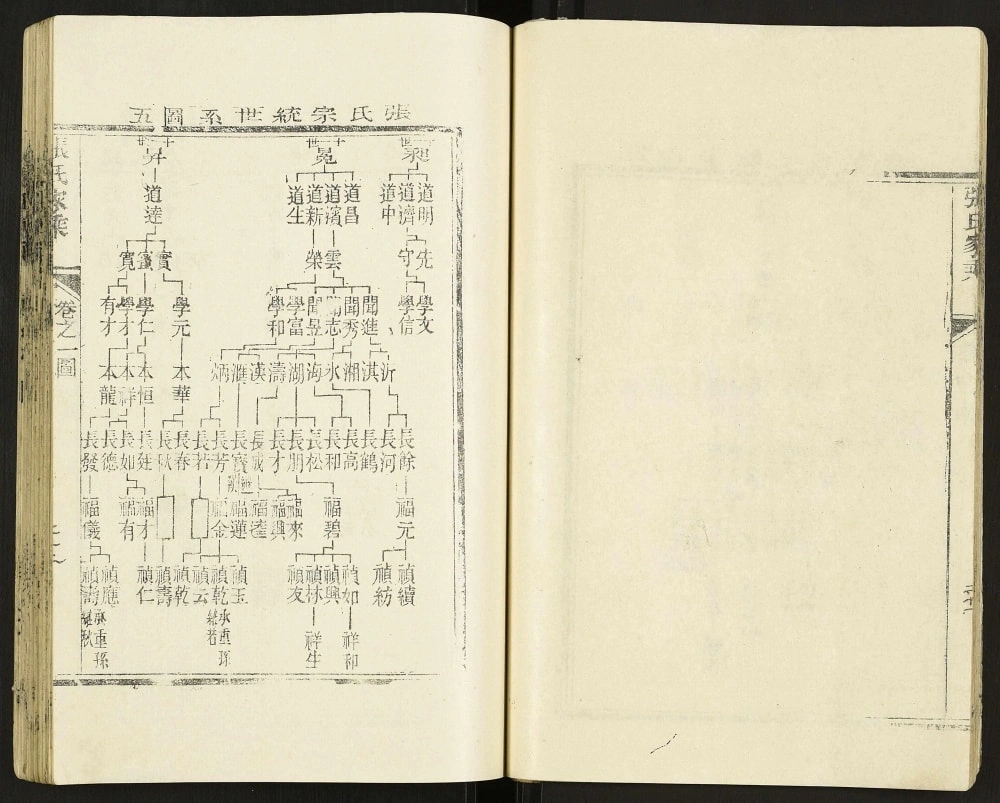 張氏宗統世系圖五
冕
昇
道明
道濟
道中
道昌
道濱
道新
道生
道達
先
守
雲
榮
實
賓
寬
學文
學信
聞進
聞秀
聞志
聞昱
學富
學和
學元
學仁
學才
有才
沂
淇
湘
氷
海
湖
濤
漢
濰
炳
本華
本恒
本祥
本龍
長餘
長河
長鶴
長高
長和
長松
長朋
長才
長成
長賓
長芳
長若
長春
長秋
長廷
長如
長德
長發
福元
福碧
福來
福興
福達
福蓮
福金
福才
福有
福儀
禎續
禎紡
禎如
禎興
禎林
禎友
禎玉
禎乾
禎云
禎乾
禎壽
禎仁
禎應
禎壽
承重孫
繼若
承重孫
繼秋
祥和
祥生
張氏家乘
卷之一圖
張氏家乘